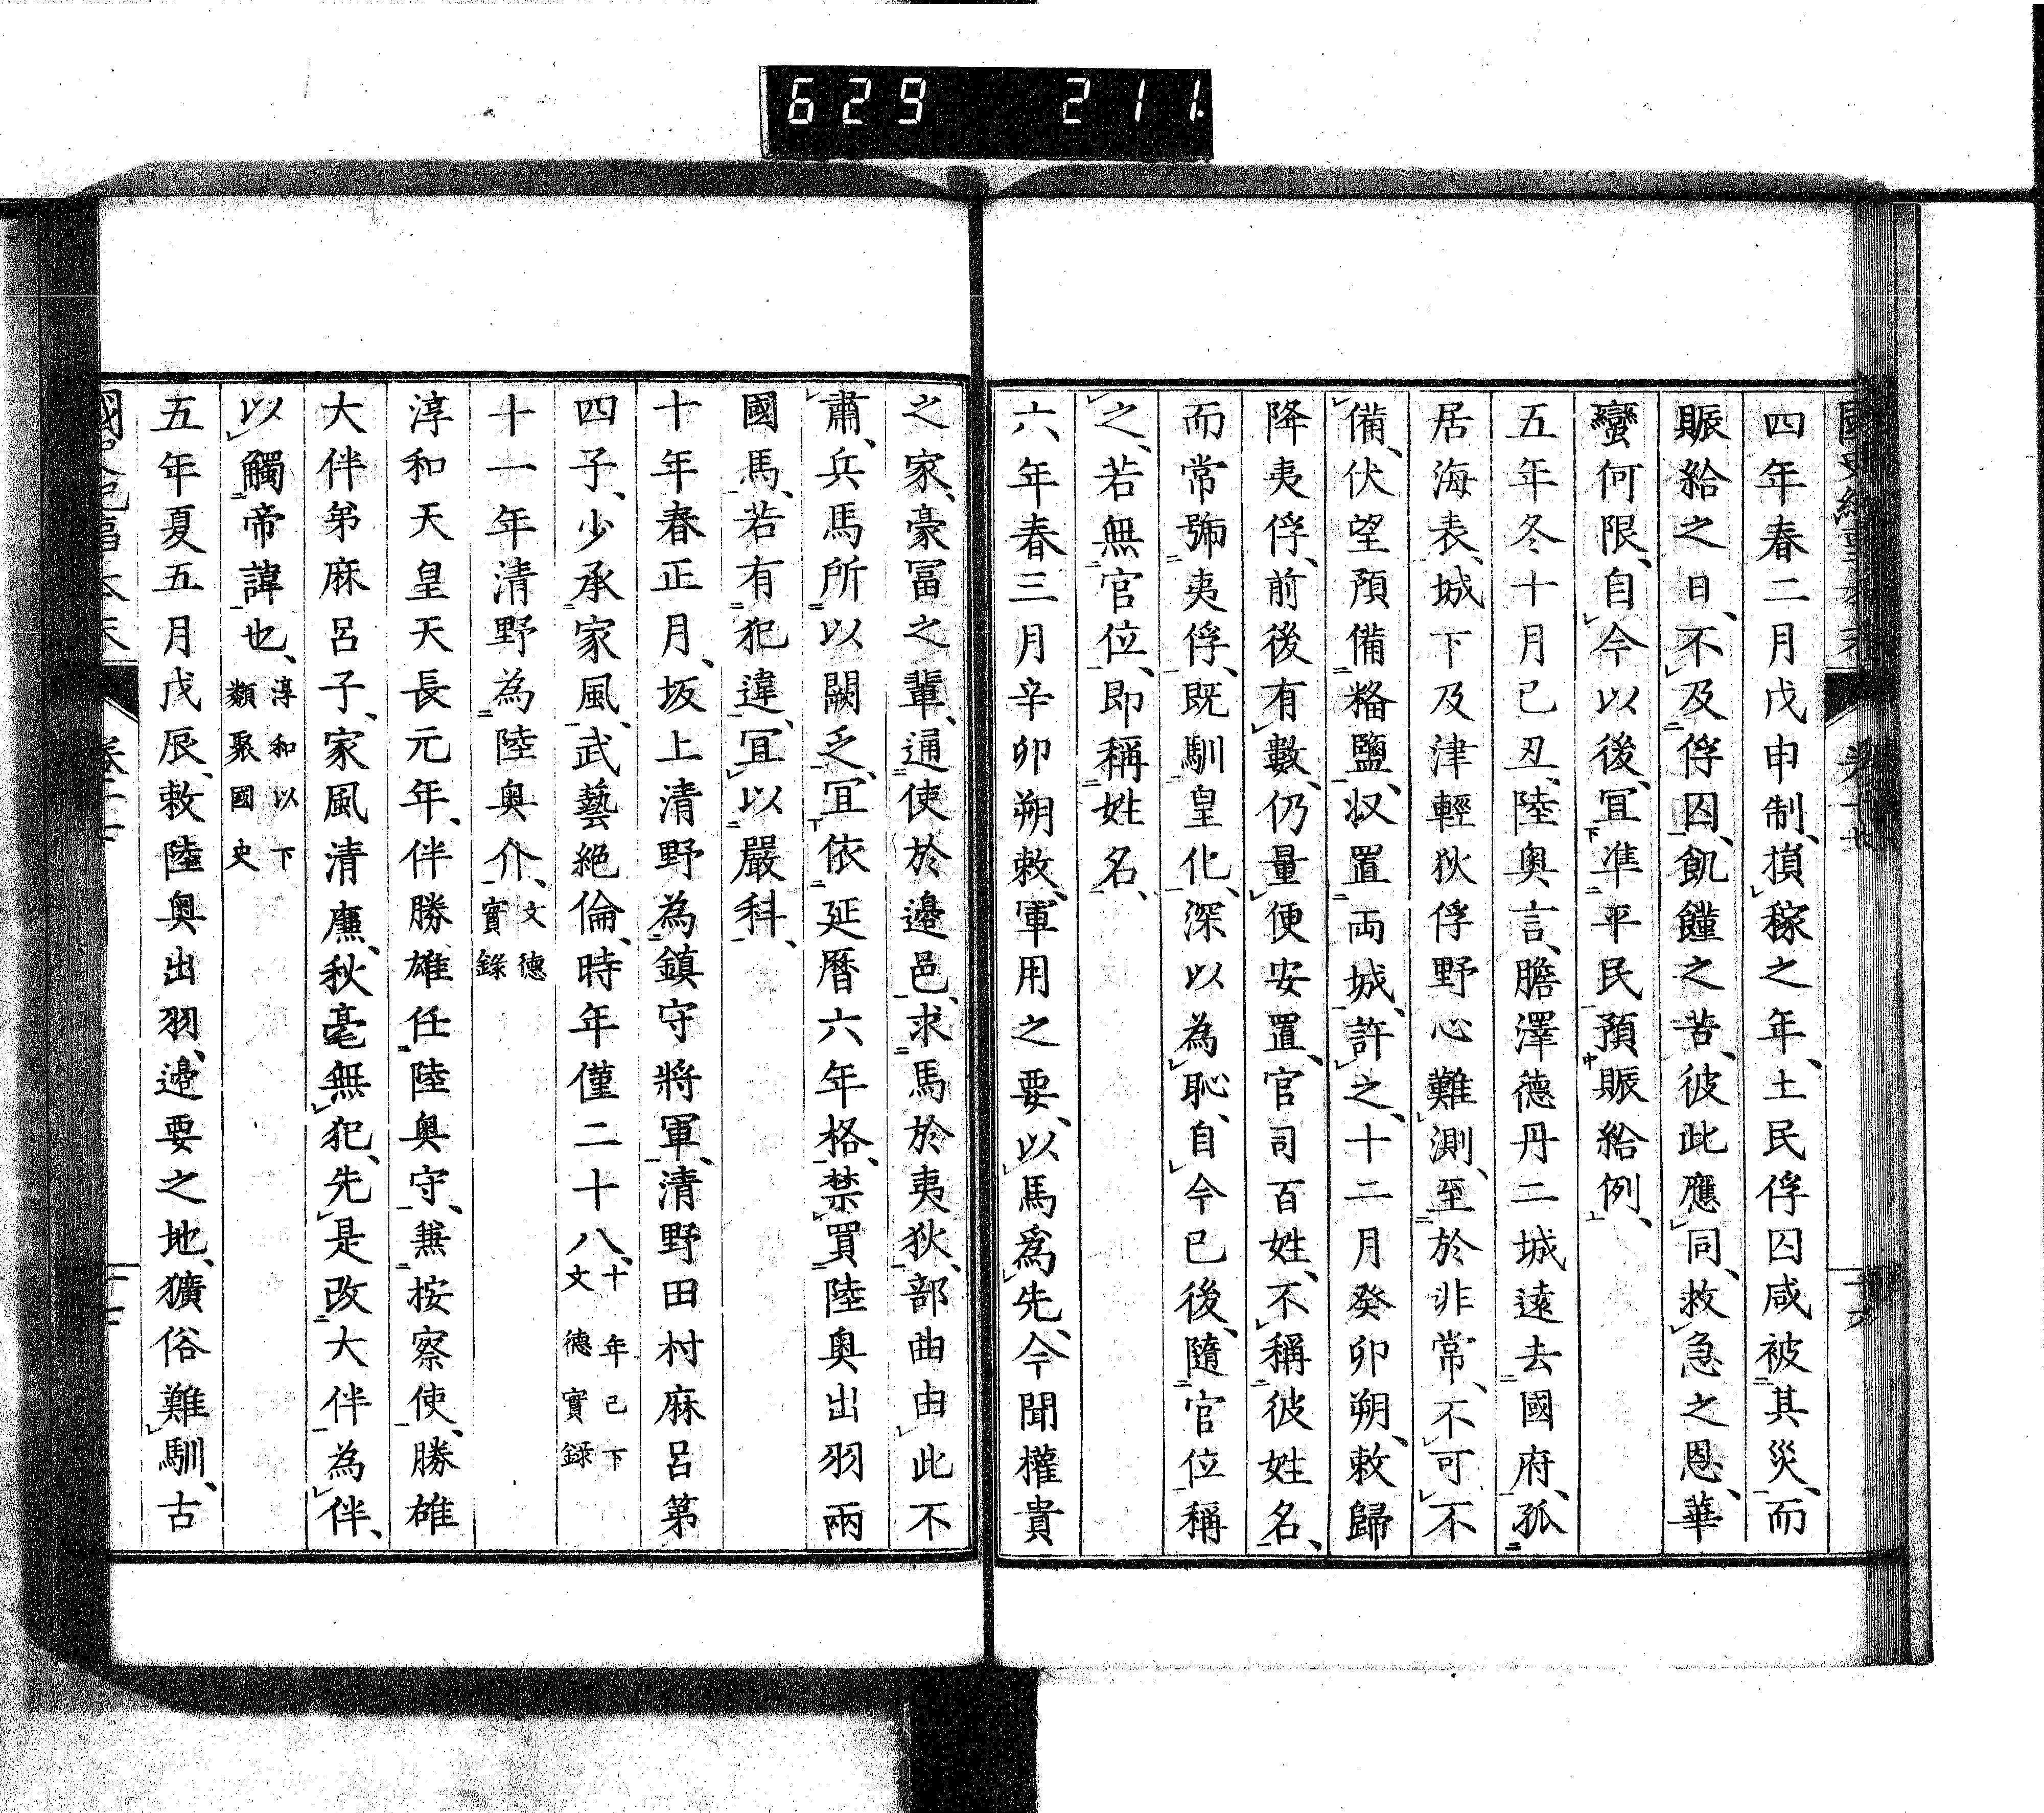 629 211
四年春二月戊申制、損稼之年、土民俘囚咸被其災、而
賑給之日、不及俘囚、飢饉之苦、彼此應同、救急之恩、華
蠻何限、自今以後、冝準平民預賑給例、
五年冬十月己丑、陸奥言、膽澤德丹二城遠去國府、孤
居海表、城下及津輕狄俘野心難測、至於非常、不可不
備、伏望預備糒鹽、収置両城、許之、十二月癸卯朔、敕歸
降夷俘、前後有數、仍量便安置、官司百姓、不稱彼姓名、
而常號夷俘、既馴皇化、深以為恥、自今已後、隨官位稱
之、若無官位、即稱姓名、
六年春三月辛卯朔敕、軍用之要、以馬爲先、今聞權貴
之家、豪冨之輩、通使於邊邑、求馬於夷狄、部曲由此不
肅、兵馬所以闕乏、冝依延暦六年格、禁買陸奥出羽兩
國馬、若有犯違、冝以嚴科、
十年春正月、坂上清野為鎮守將軍、清野田村麻呂第
四子、少承家風、武藝絶倫、時年僅二十八、十年已下文德實録
十一年清野為陸奥介、文德實錄
淳和天皇天長元年、伴勝雄任陸奥守、兼按察使、勝雄
大伴弟麻呂子、家風清廉、秋毫無犯、先是改大伴為伴、
以觸帝諱也、淳和以下類聚國史
五年夏五月戊辰、敕陸奥出羽、邊要之地、獷俗難馴、古